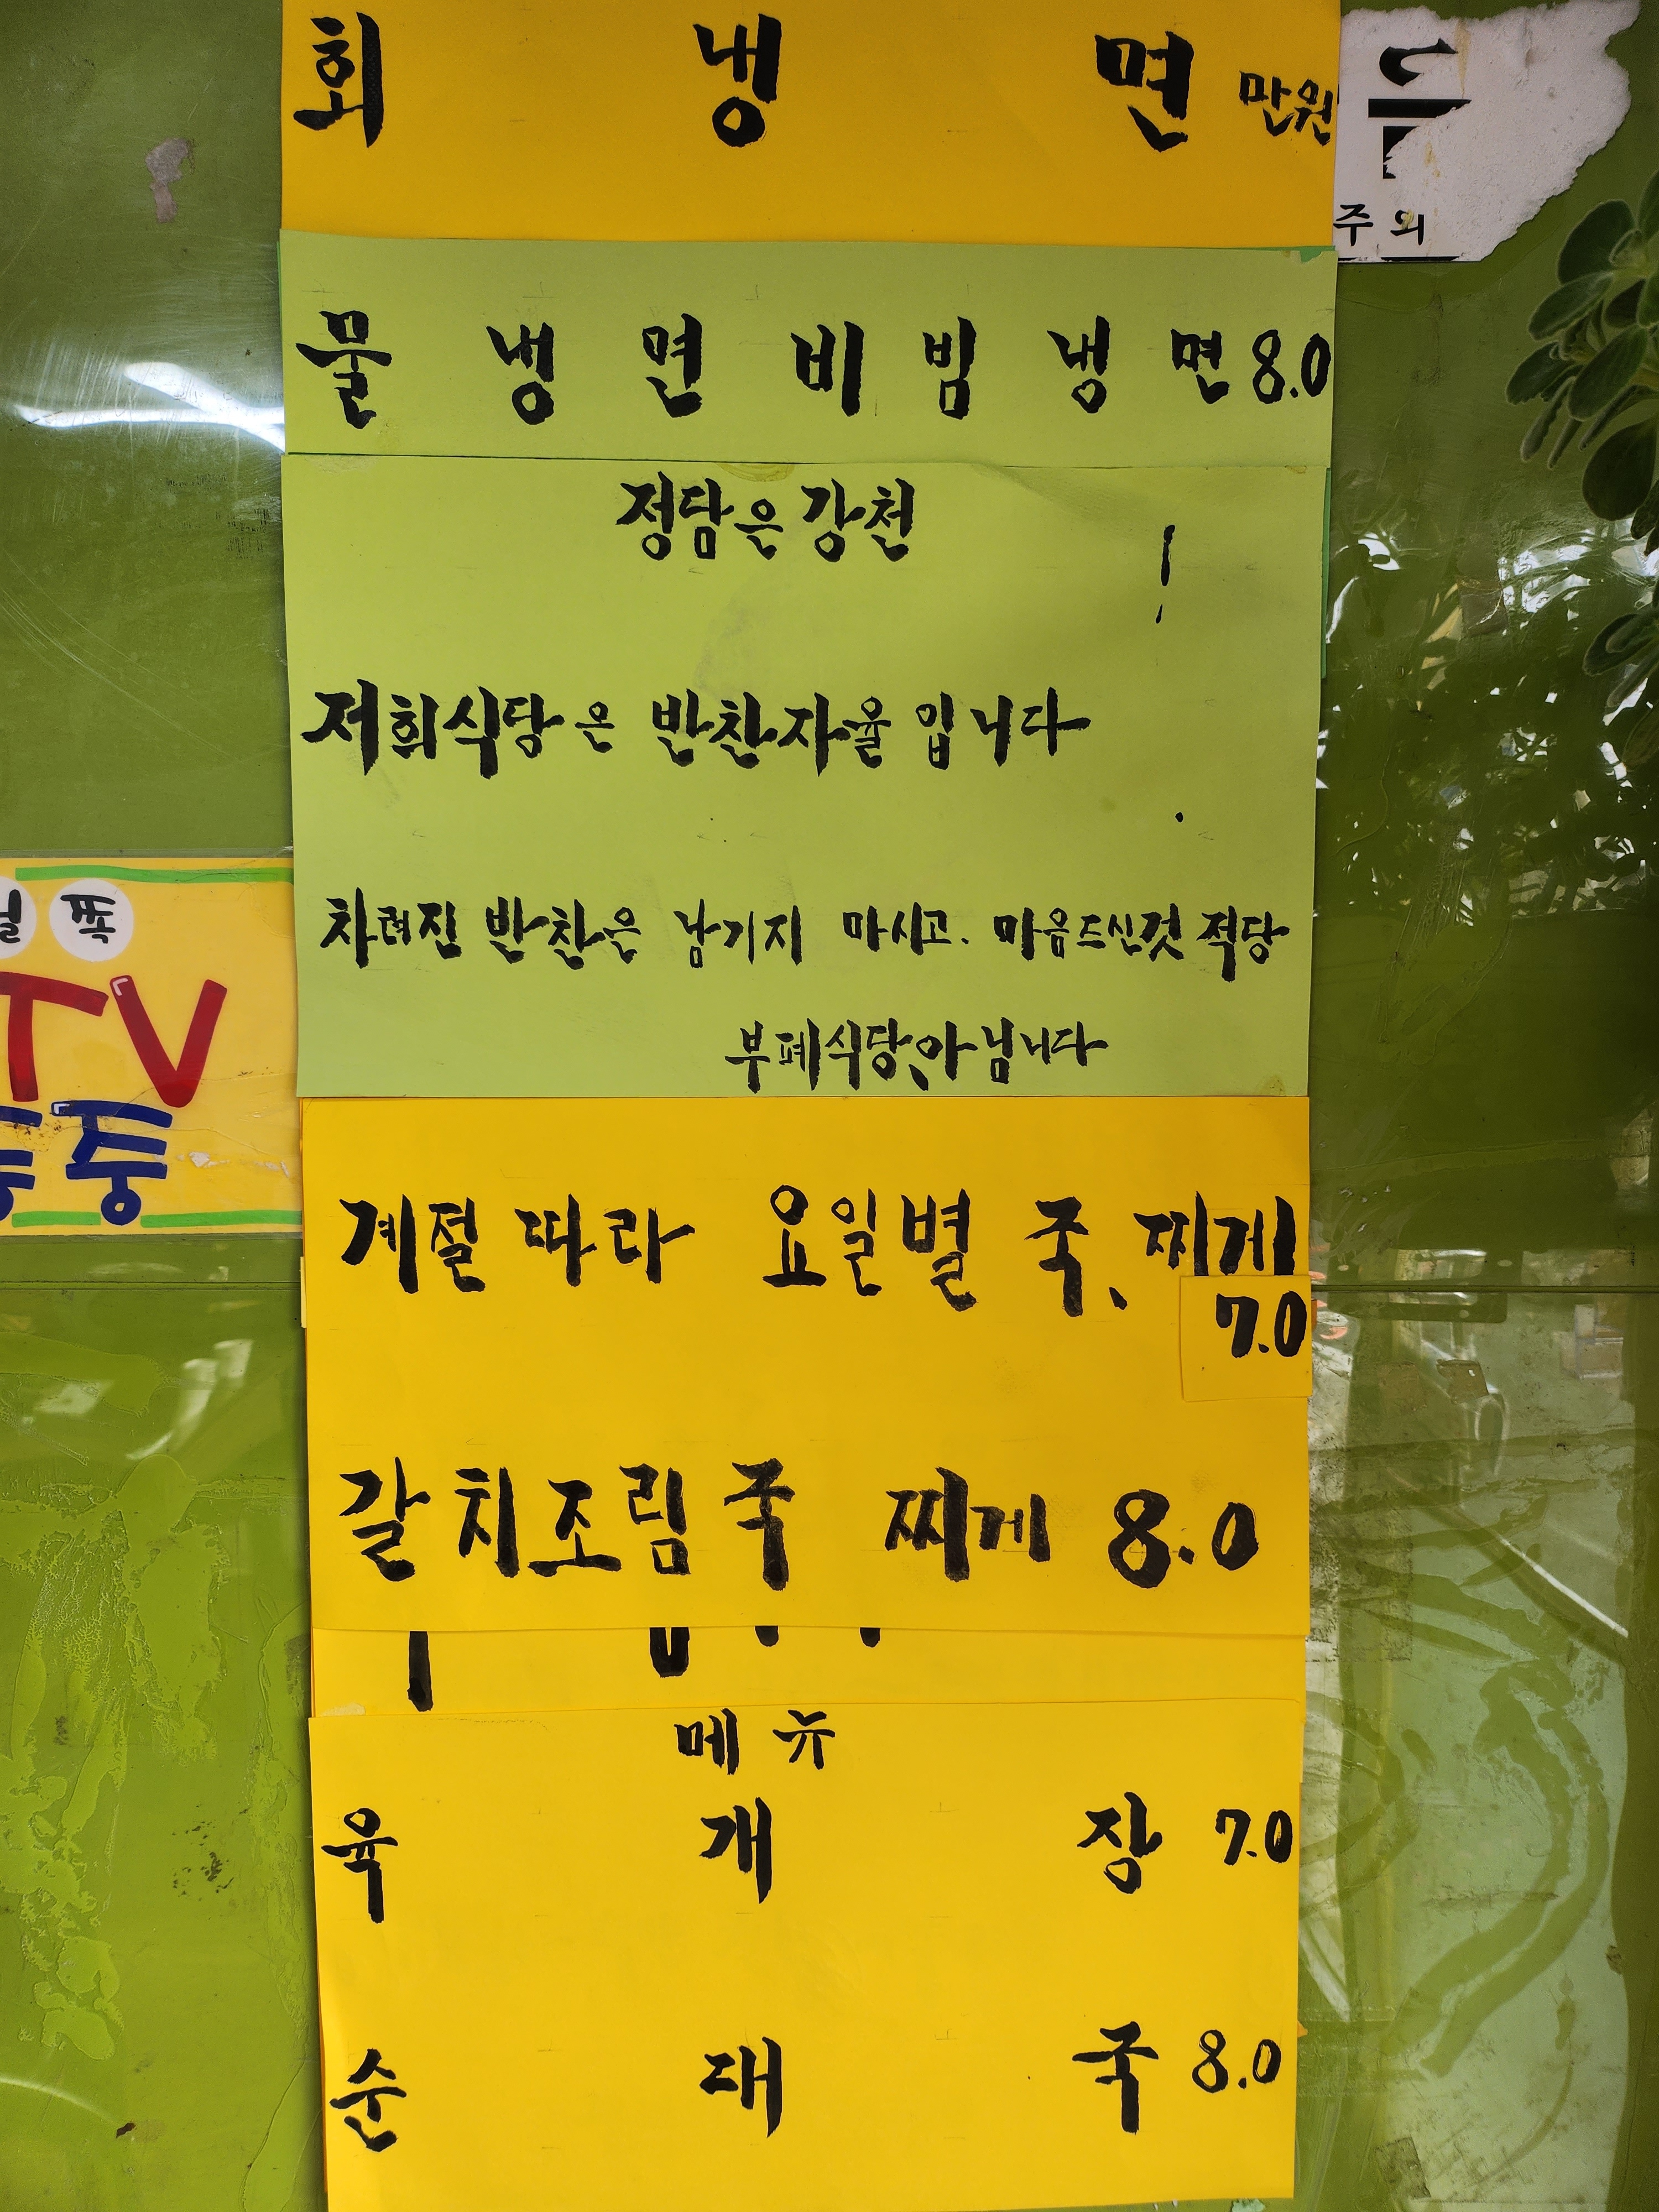 회 냉 면 만원
주의
물 냉 면 비 빔 냉 면 8.0
정담은강천
!
저희식당은 반찬자율입니다
차려진 반찬은 남기지 마시고. 마음드신것 적당
부페식당,아님니다
쪽
TV
중
계절 따라 요일별 국、찌게
7.0
갈치조림국 찌게 8.0
메뉴
육 개 장 7.0
순 대 국 8.0